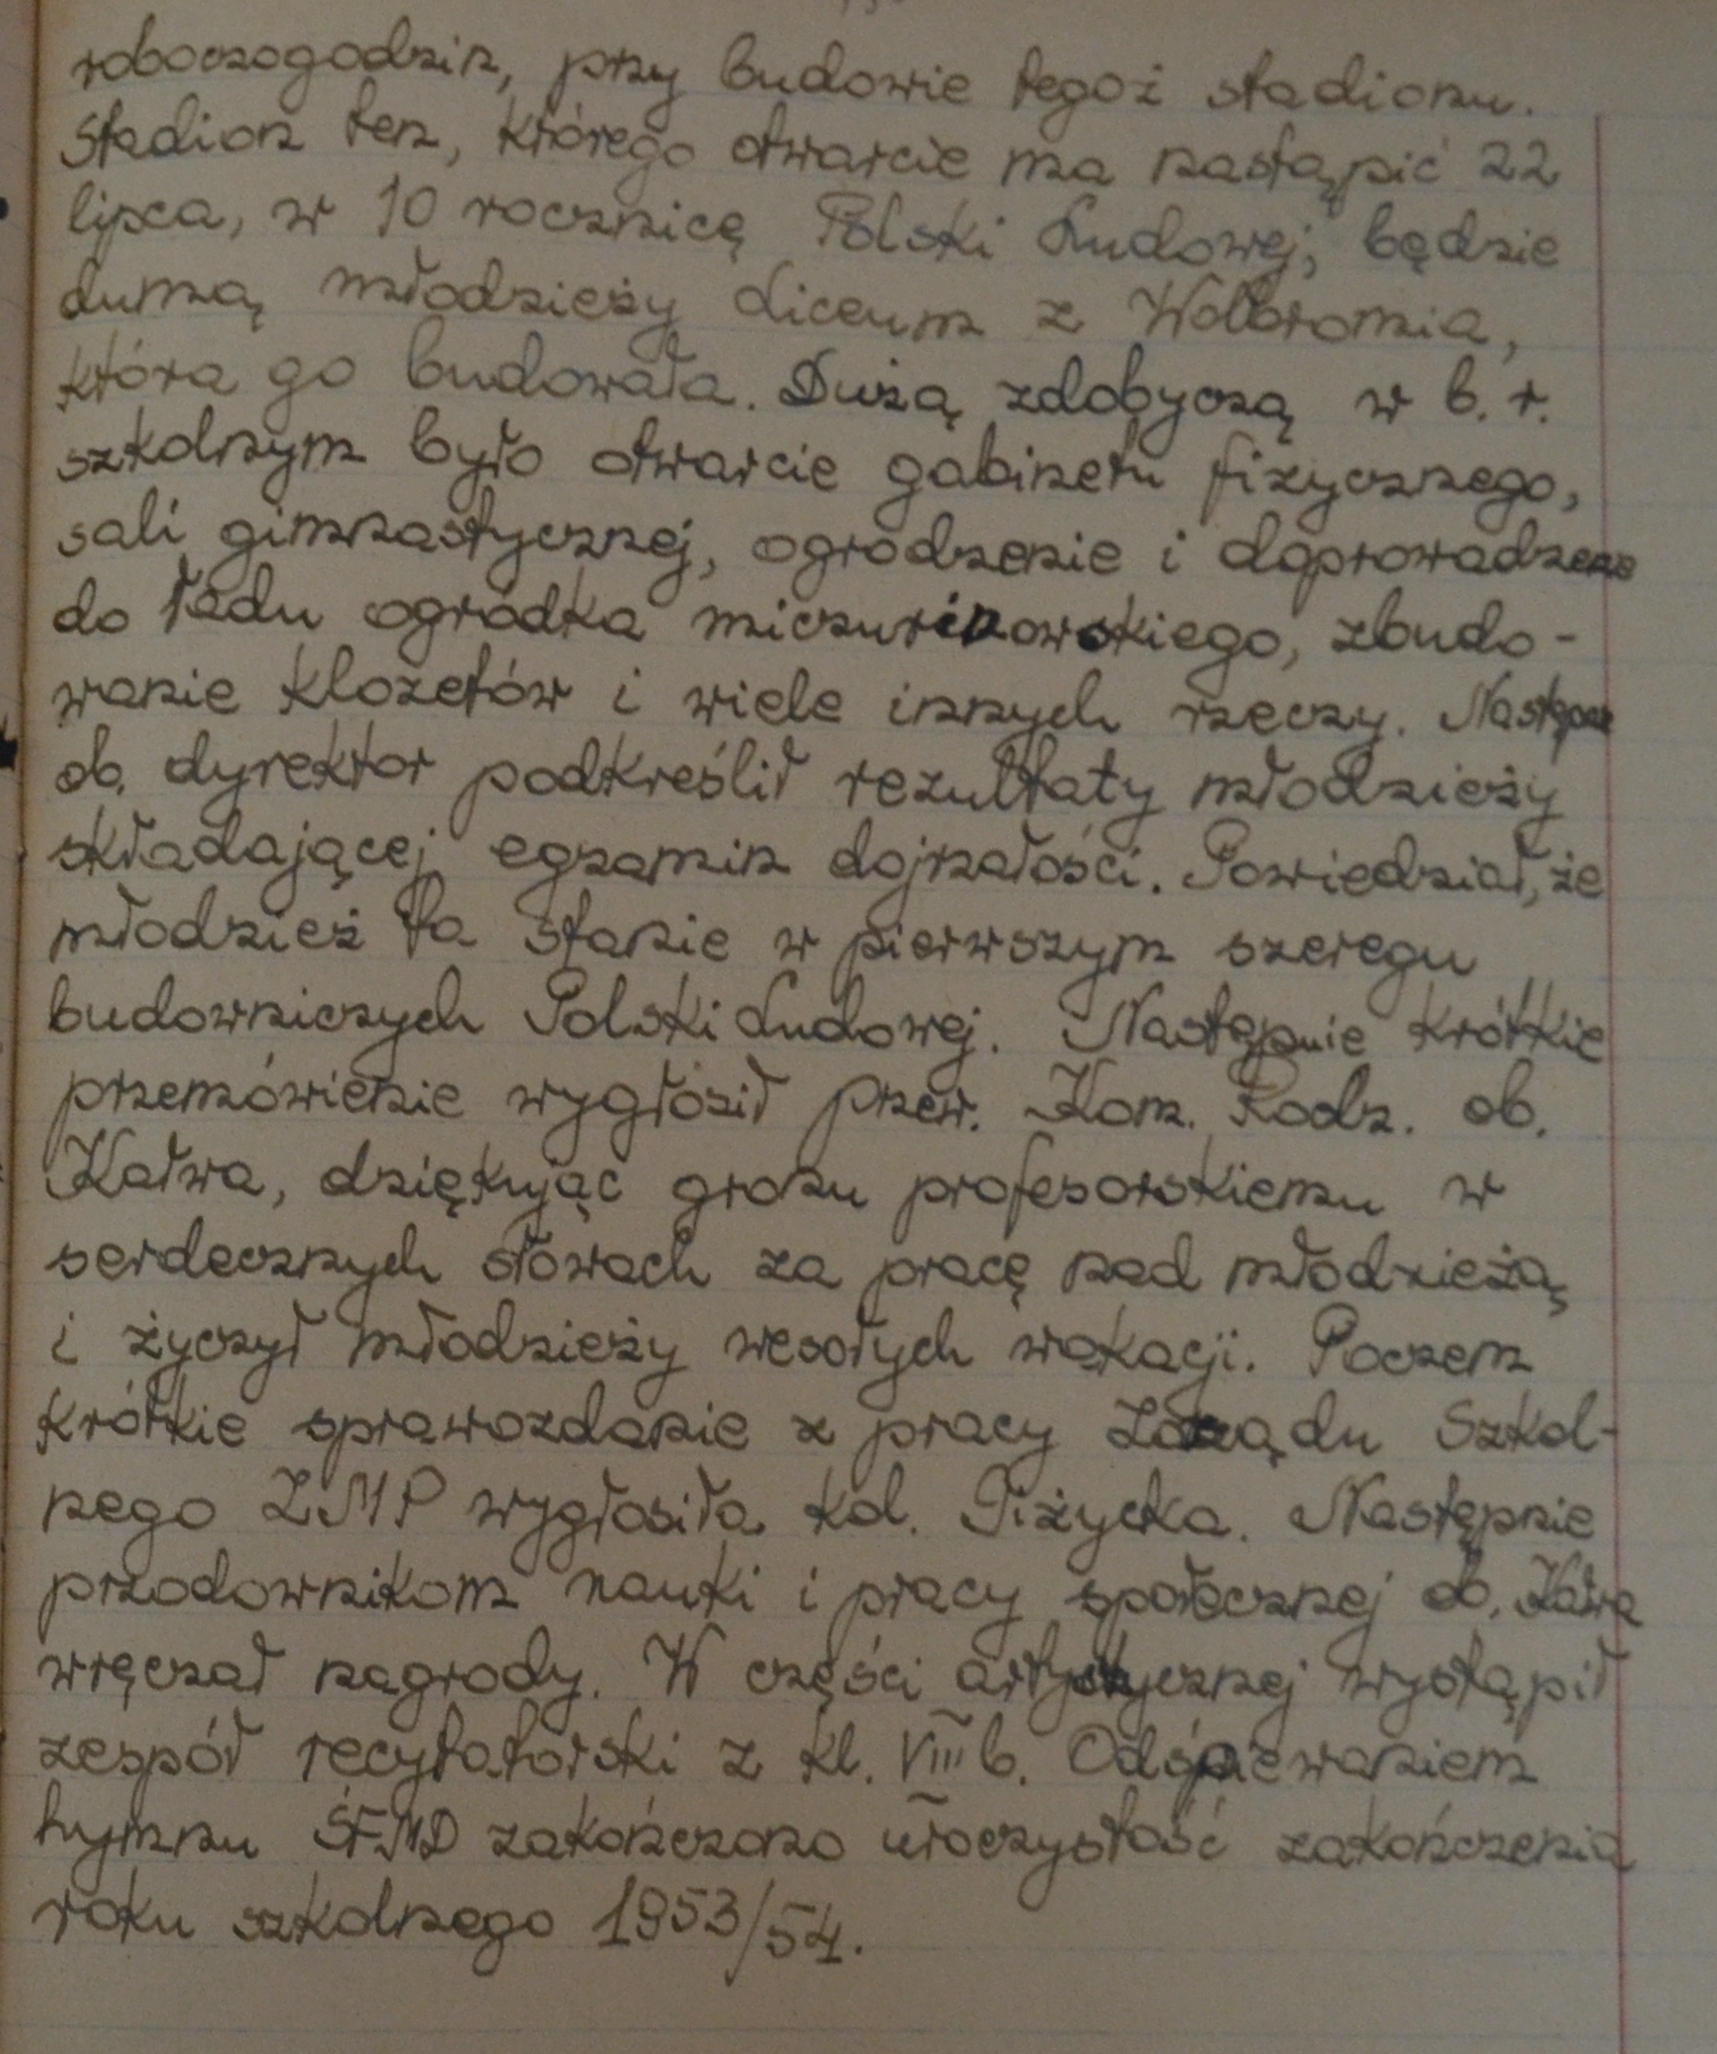 roboczogodzin, przy budowie tegoż stadionu.
Stadion ten, którego otwarcie ma nastąpić 22
lipca, w 10 rocznicę Polski Ludowej, będzie
dumą młodzieży Liceum z Wolbromia,
która go budowała. Dużą zdobyczą w b. r.
szkolnym było otwarcie gabinetu fizycznego,
sali gimnastycznej, ogrodzenie i doprowadzenie
do ładu ogródka miczurinowskiego, zbudo-
wanie klozetów i wiele innych rzeczy. Następnie
ob. dyrektor podkreślił rezultaty młodzieży
składającej egzamin dojrzałości. Powiedział, że
młodzież ta stanie w pierwszym szeregu
budowniczych Polski Ludowej. Następnie krótkie
przemówienie wygłosił przew. Kom. Rodz. ob.
Kałwa, dziękując gronu profesorskiemu w
serdecznych słowach za pracę nad młodzieżą
i życzył młodzieży wesołych wakacji. Poczem
krótkie sprawozdanie z pracy Zarządu Szkol-
nego ZMP wygłosiła kol. Piżycka. Następnie
przodownikom nauki i pracy społecznej ob. Kałwa
wręczał nagrody. W części artystycznej wystąpił
zespół recytatorski z kl. VIII b. Odśpiewaniem
hymnu ŚFMD zakończono uroczystość zakończenia
roku szkolnego 1953/54.